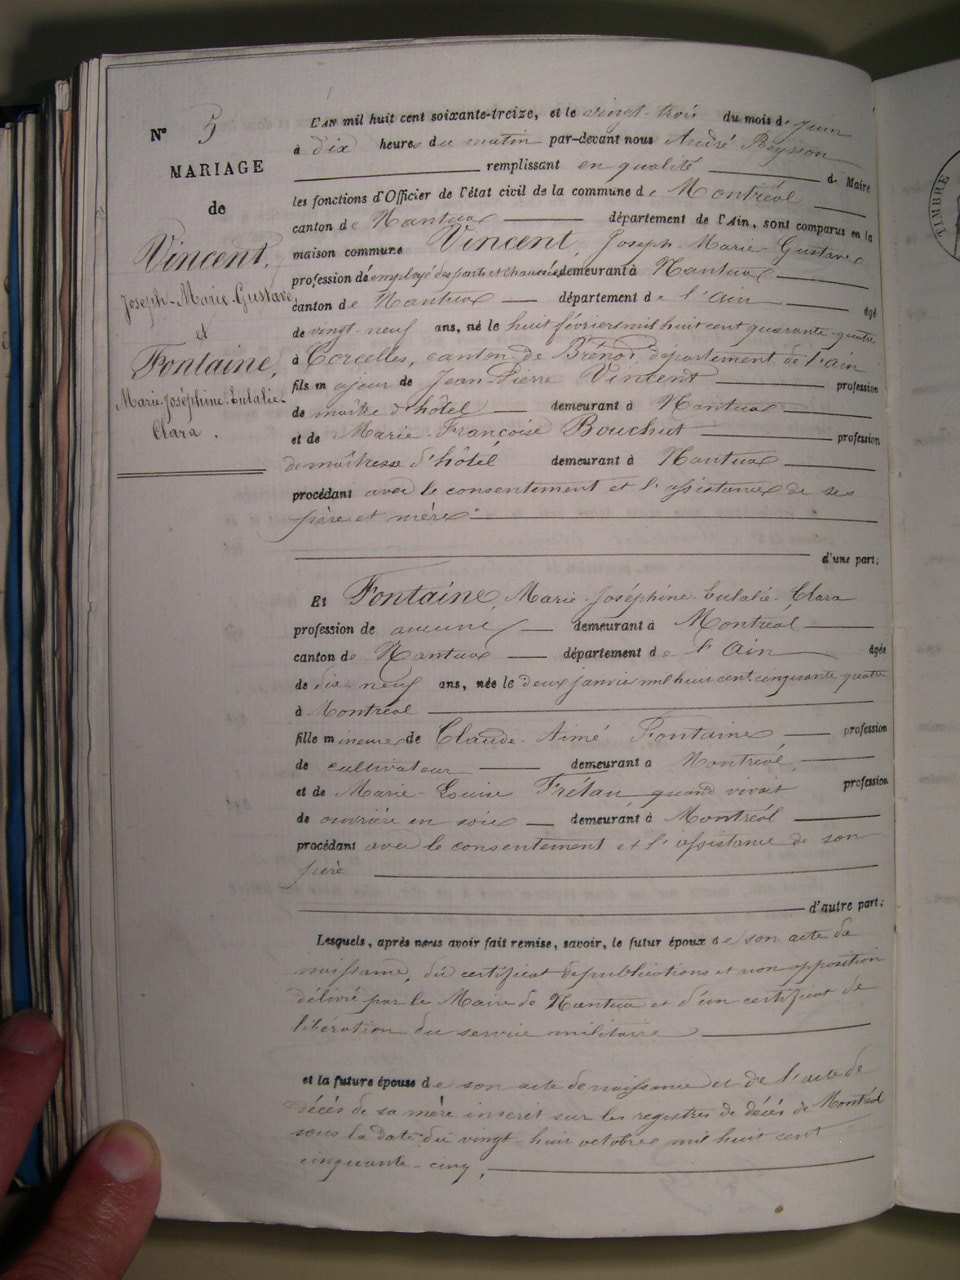 N° 5
MARIAGE
de
Vincent,
Joseph-Marie-Gustave
et
Fontaine,
Marie-Joséphine-Eulalie-
Clara.
L'AN mil huit cent soixante-treize, et le vingt-trois du mois de juin
à dix heures du matin par-devant nous André Beysson
remplissant en qualité de Maire
les fonctions d'Officier de l'état civil de la commune de Montréal
canton de Nantua département de l'Ain, sont comparus en la
maison commune Vincent, Joseph-Marie-Gustave
profession d'employé des ponts et chaussées demeurant à Nantua
canton de Nantua département de l'Ain âgé
de vingt-neuf ans, né le huit février mil huit cent quarante-quatre
à Corcelles, canton de Brénod, département de l'ain
fils majeur de Jean-Pierre Vincent profession
de maître d'hôtel demeurant à Nantua
et de Marie-Françoise Bouchut profession
de maîtresse d'hôtel demeurant à Nantua
procédant avec le consentement et l'assistance de ses
père et mère
d'une part;
Et Fontaine, Marie-Joséphine-Eulalie-Clara
profession de aucune demeurant à Montréal
canton de Nantua département de l'Ain âgée
de dix-neuf ans, née le deux janvier mil huit cent cinquante quatre
à Montréal
fille mineure de Claude-Aimé Fontaine profession
de cultivateur demeurant à Montréal
et de Marie-Louise Frétau quand vivait profession
de ouvrière en soie demeurant à Montréal
procédant avec le consentement et l'assistance de son
père
d'autre part;
Lesquels, après nous avoir fait remise, savoir, le futur époux de son acte de
naissance, du certificat de publications et non opposition
délivré par le Maire de Nantua et d'un certificat de
libération du service militaire
et la future épouse de son acte de naissance et de l'acte de
décès de sa mère inscrit sur les registres de décès de Montréal
sous la date du vingt-huit octobre mil huit cent
cinquante-cinq,
TIMBRE